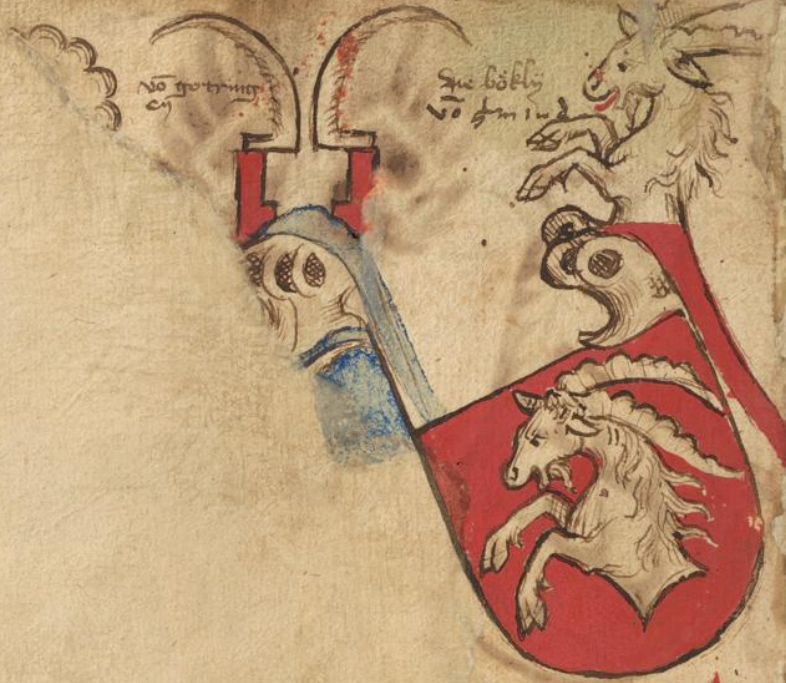 vō gotring
en
Die bökly
vō gmünd